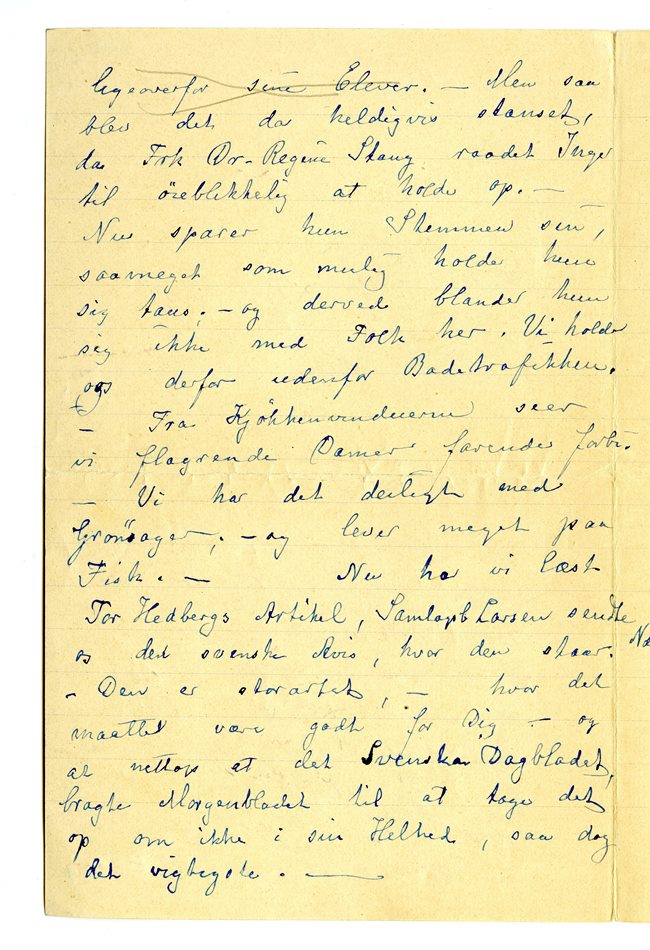 ligeoverfor sine Elever. – Men saa
blev det da heldigvis stanset,
da Frk Dr – Regine Stang raadet Inger
til öieblikkelig at holde op. –
Nu sparer hun Stemmen sin,
saameget som mulig holder hun
sig taus; – og derved blander hun
sig ikke med Folk her. Vi holder
os derfor udenfor Badetrafikken.
– Fra Kjökkenvinduerne seer
vi flagrende Damer farende forbi.
– Vi har det deiligt med
Grönsager; – og lever meget paa
Fisk. – Nu har vi læst
Tor Hedbergs Artikel, Larsen sendte
os den svenske Avis, hvor den staar.
– Den er storartet, – hvor det
maatte være godt for Dig – og
at nettop at det Svenska Dagbladet,
bragte Morgenbladet til at tage det
op om ikke i sin Helhed, saa dog
det vigtigste. –